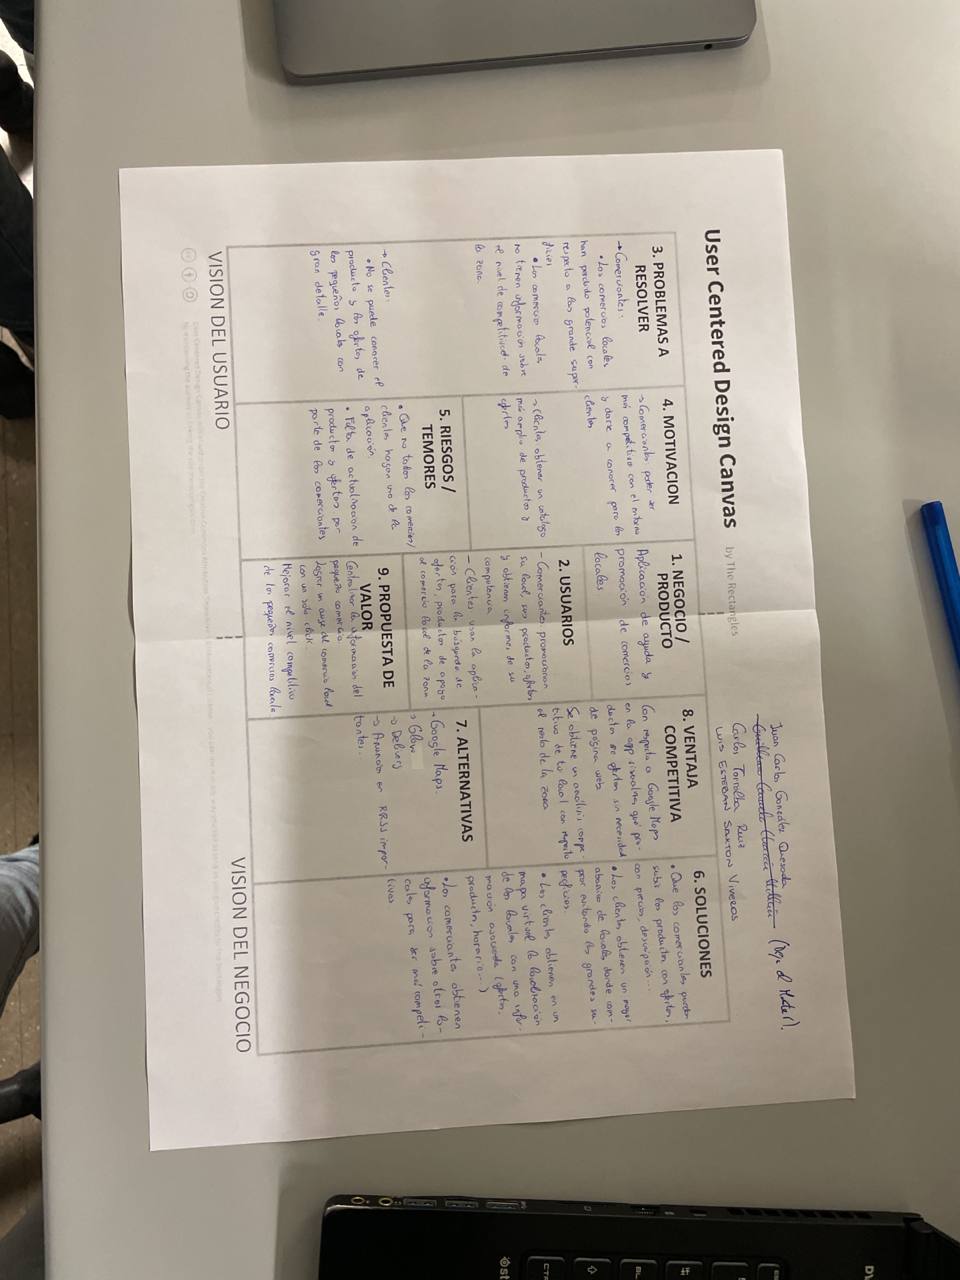 Juan Carlos González Quesada
(Deja el Master).
Carlos Torralba Ruiz
LUIS ESTEBAN SAXTON VIVEROS
User Centered Design Canvas by The Rectangles
3. PROBLEMAS A
RESOLVER
→ Comerciantes:
• Los comercios locales
han perdido potencial con
respecto a las grande super-
ficies
• Los comercio locales
no tienen información sobre
el nivel de competitivid. de
la zona.
→ Clientes:
• No se puede conocer el
producto y las ofertas de
los pequeños locales con
gran detalle.
4. MOTIVACION
→ Comerciantes poder ser
más competitivo con el entorno
y darse a conocer para los
clientes
→ Clientes obtener un catálogo
más amplio de productos y
ofertas
5. RIESGOS /
TEMORES
• Que no todos los comercios/
clientes hagan uso de la
aplicación.
• Falta de actualización de
productos y ofertas por
parte de los comerciantes
1. NEGOCIO /
PRODUCTO
Aplicación de ayuda y
promoción de comercios
locales
2. USUARIOS
- Comerciantes promocionan
su local, sus productos, ofertas
y obtienen informes de su
competencia
- Clientes usan la aplica-
ción para la búsqueda de
ofertas, productos de apoyo
al comercio local de la zona
9. PROPUESTA DE
VALOR
Centralizar la información del
pequeño comercio.
Lograr un auge del comercio local
con un solo click.
Mejorar el nivel competitivo
de los pequeños comercios locales
8. VENTAJA
COMPETITIVA
Con respecto a Google Maps
en la app visualizas qué pro-
ductos se ofertan sin necesidad
de página web
Se obtiene un análisis compe-
titivo de tu local con respecto
al resto de la zona
7. ALTERNATIVAS
→ Google Maps.
→ Glovo
→ Delivery
→ Anuncios en RRSS impor-
tantes.
6. SOLUCIONES
• Que los comerciantes puedan
subir los productos con ofertas,
con precios, descripción...
• Los clientes obtienen un mayor
abanico de locales donde com-
prar evitando las grandes su-
perficies.
• Los clientes obtienen en un
mapa virtual la localización
de los locales con una infor-
mación asociada (ofertas,
producto, horario...)
• Los comerciantes obtienen
información sobre otros lo-
cales para ser más competi-
tivos.
VISION DEL USUARIO
VISION DEL NEGOCIO